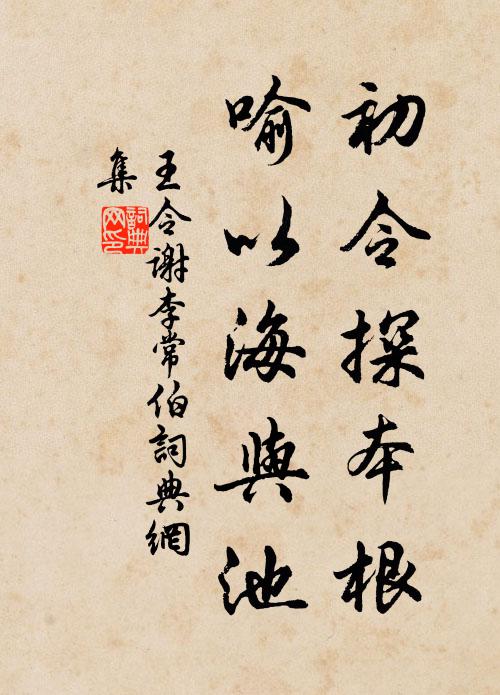 初令探本根
喻以海與池
王令謝李常伯詞典網
集
詞典
网印